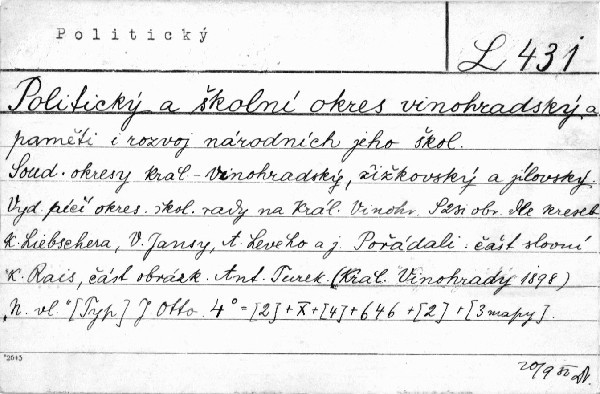 Politický
L 431
Politický a školní okres vinohradský a
paměti i rozvoj národních jeho škol.
Soud. okresy král-vinohradský, žižkovský a jílovský.
Vyd. péčí okres. škol. rady na Král. Vinohr. S 231 obr. dle kreseb
K. Liebschera, V. Jansy, A. Levého a j. Pořádali: část slovní
K. Rais, část obrázk. Ant. Turek. (Král. Vinohrady 1898)
„N. vl." [Typ] J Otto. 4° = [2] + X + [4] + 646 + [2] + [3 mapy].
*2013
20/9